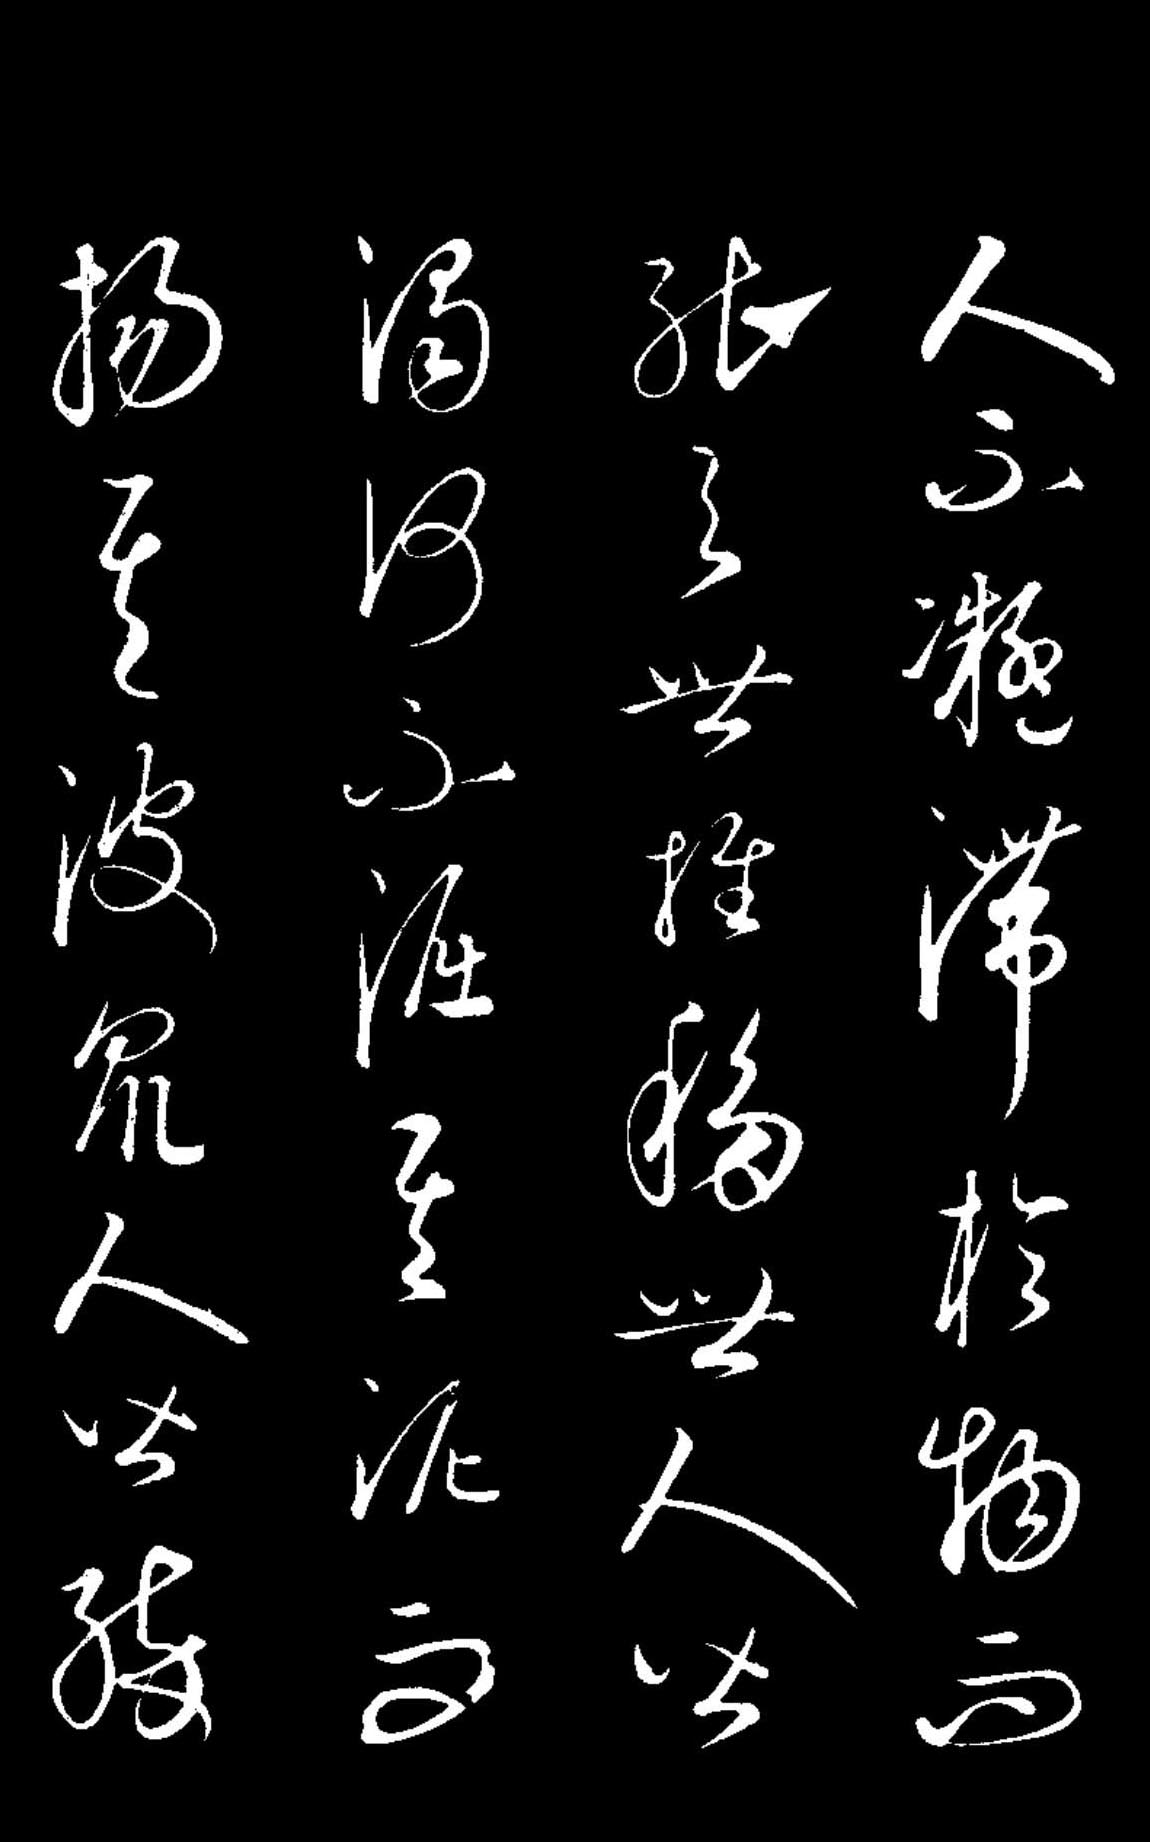 人不凝滯於物而
能與世推移世人皆
濁何不淈其泥而
揚其波衆人皆醉